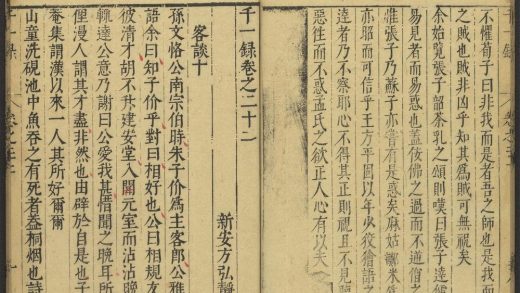 不懼荀子曰非我而是者吾之師也是我而
之賊也賊非凶乎知其為賊可無視矣
余始覽張子韶茶乳之頌則嘆曰張子達
易見者而易惑也蓋佞佛之過而不道
惟張子乃蘇子亦嘗有是惑矣麻姑擲米
亦昭而可信乎王方平固以年少狡獪語之
達者乃不察耶心不得其正則視且不見
惡往而不惑孟氏之欲正人心有以夫
千一錄卷之二十二
新安方弘靜
客談十
孫文恪公南宗伯時朱子价為主客郎公雅
語余曰知子价乎對曰相好也公曰相規友
彼清才胡不升建安堂入開元室而沾沾
輒達公意乃謝曰公愛我甚惜聞之晚耳所
俚漫人謂其才盡非然也由辟於自是也子
菴集謂漢以來一人其所好爾爾
山童洗硯池中魚吞之有死者蓋桐烟也詩